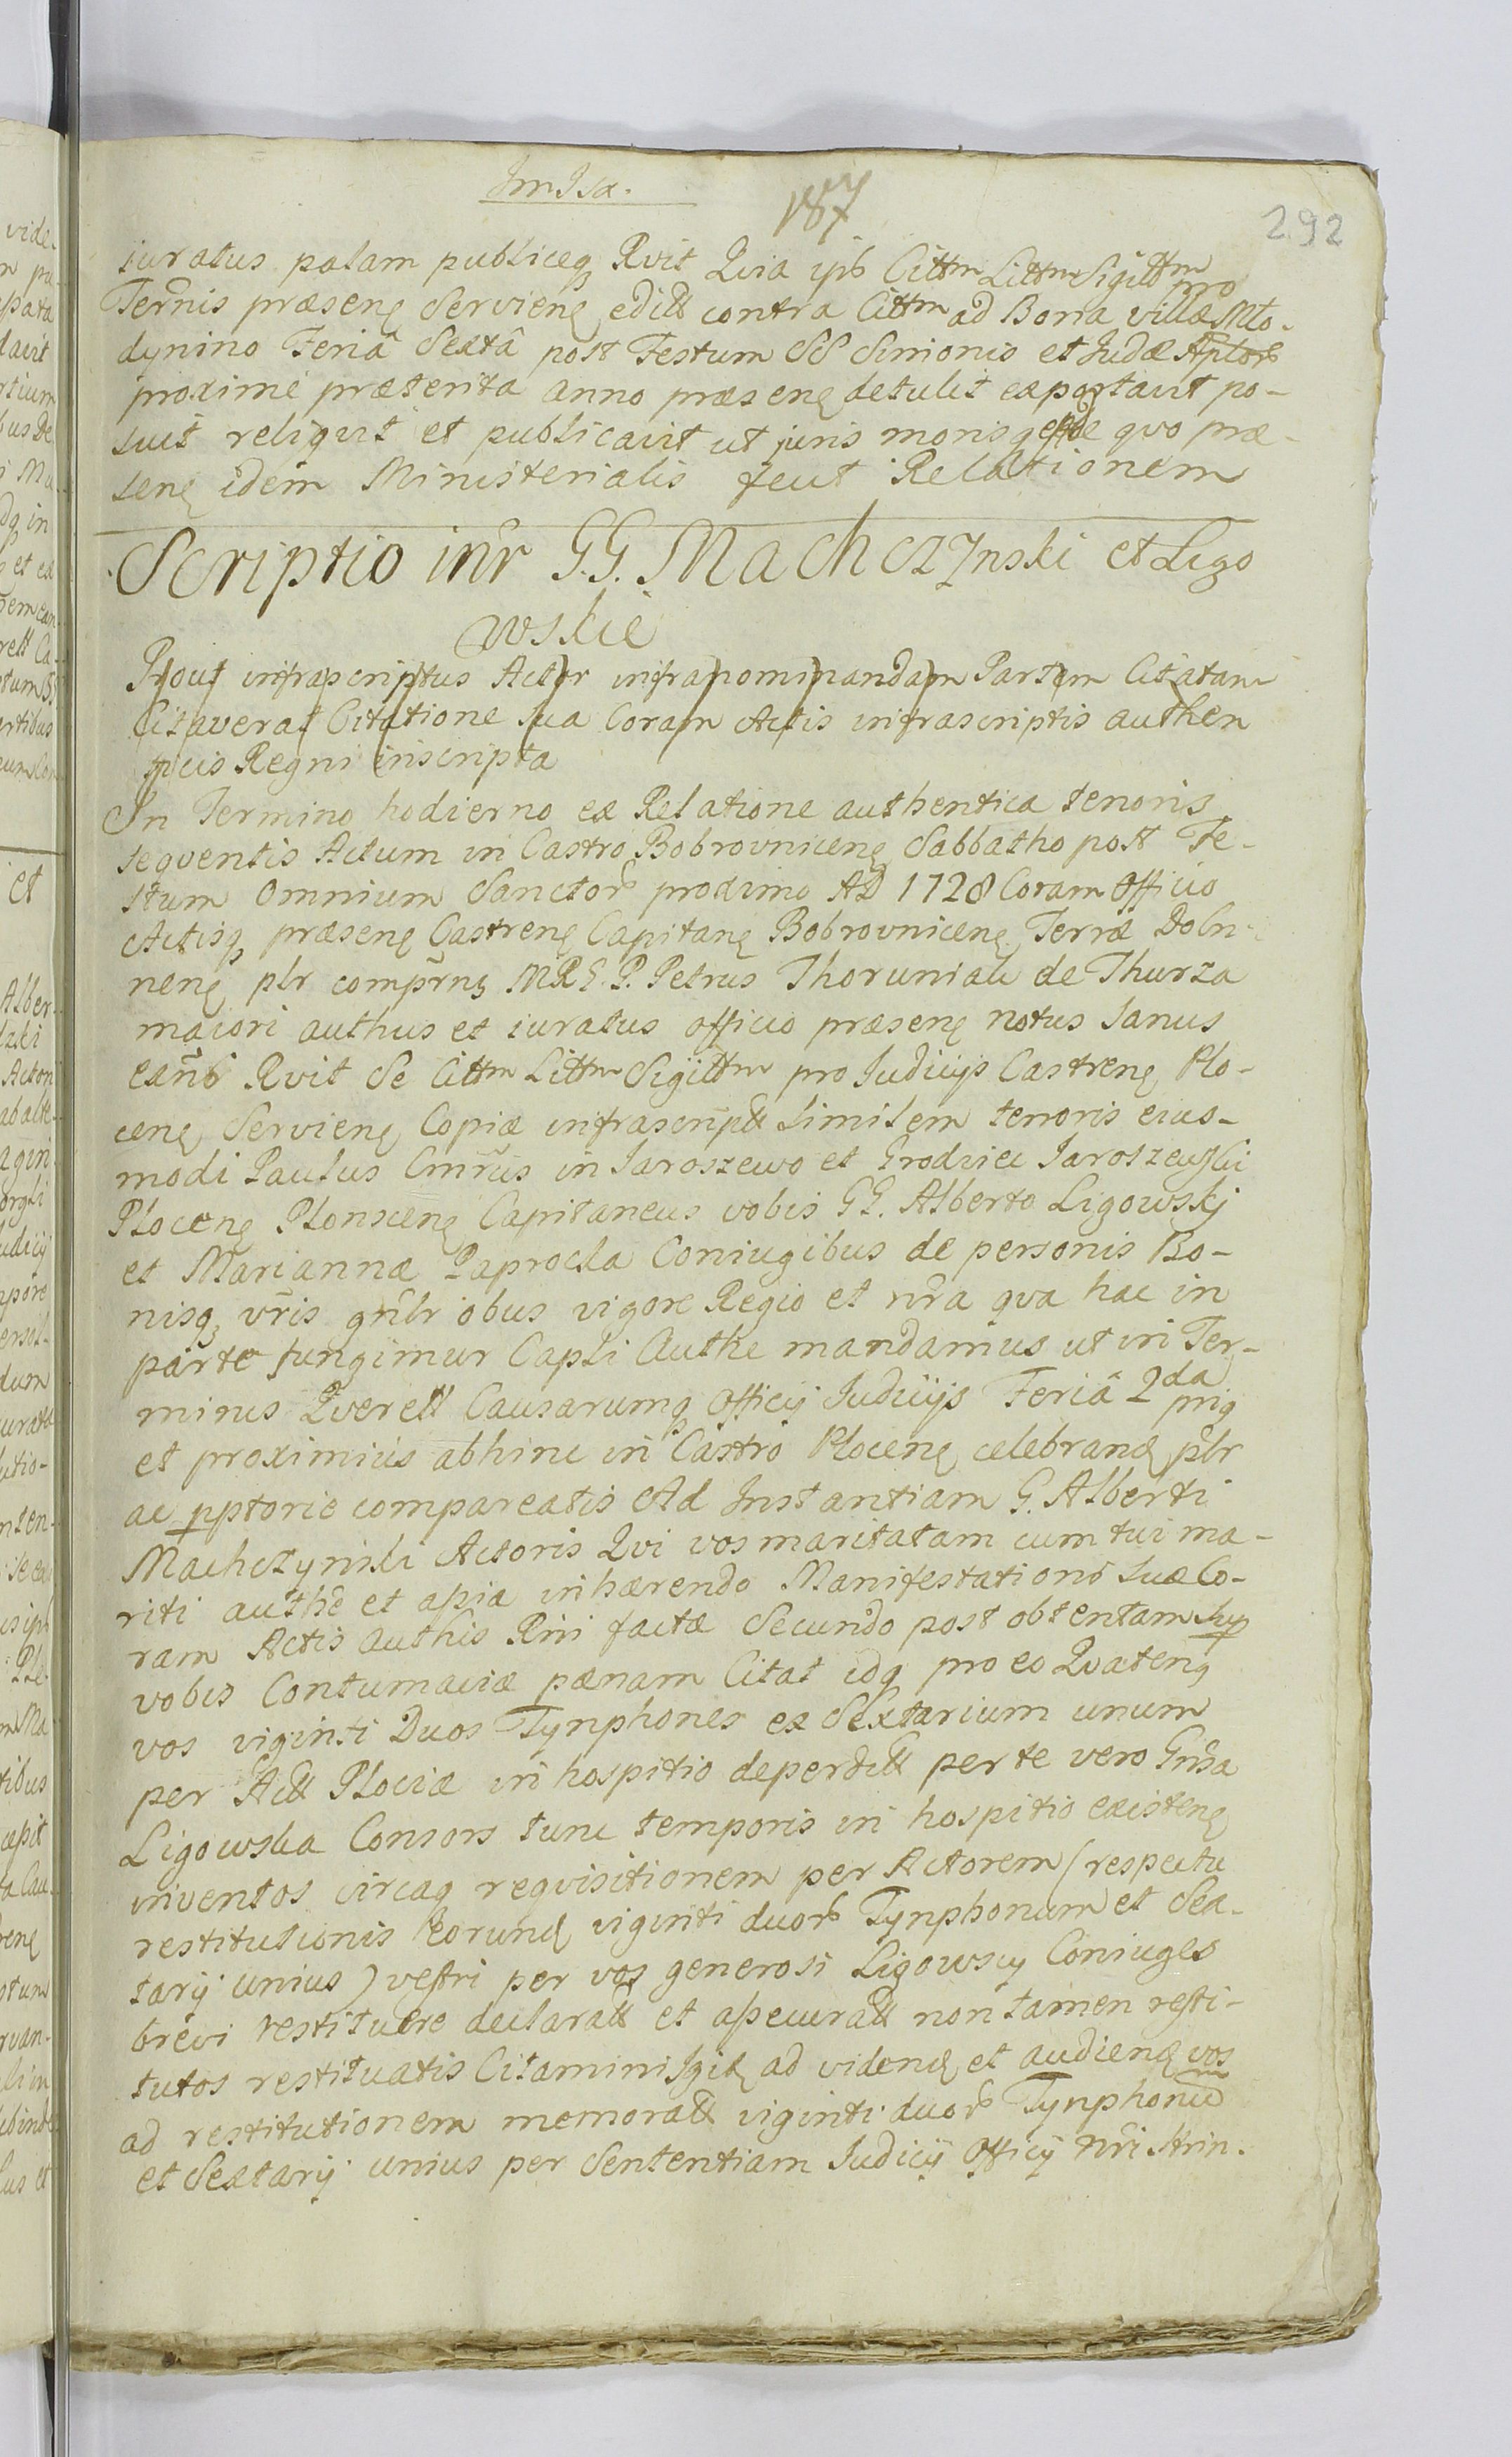 187
292
iuratus palam publiceq Rvit Qvia ipse Cittm Littm Sigittm pro
Termis præsenę Servienę editt contra Cittm ad Bona villæ Mło-
dynino Feriâ Sextâ post Festum SS Simonis et Judæ Aplor
proxime præterita anno præsenę detulit exportavit po-
suit reliqvit et publicavit ut juris moris qve qvo præ-
senę idem Ministerialis fecit Relationem
Scriptio inr G.G. Machczynski et Ligo
wskie
Prout infrascriptus Actor infranominandam Partem Citatam
Citaverat Citatione sua Coram Actis infrascriptis authen
ticis Regni inscripta
In Termino hodierno ex Relatione authentica tenoris
seqventis Actum in Castro Bobrovnicenę Sabbatho post Fe-
stum Omnium Sanctor proximo AD 1728 Coram Officio
Actisq præsenę Castrenę Capitanę Bobrovnicenę Terræ Dobri-
nenę plr comprns MRGP. Petrus Thoruniak de Thurza
maiori authus et iuratus officio præsenę notus Sanus
exns Rvit Se Cittm Littm Sigittm pro Judicijs Castrenę Plo-
cenę Servienę Copiæ infrascriptt Similem tenoris eius-
modi Paulus Cmrus in Jaroszewo et Grodziec Jaroszewski
Plocenę Plonscenę Capitaneus vobis GG. Alberto Ligowskj
et Mariannæ Paprocka Coniugibus de personis Bo-
nisq vris gnlr obus vigore Regio et nra qva hac in
parte fungimur Capli Authe mandamus ut in Ter-
minis Qverett Causarumq Officij Judicijs Feriâ 2da prię
et proximius abhinc in Castro Plocenę celebrand plr
ac pptorie compareatis Ad Instantiam G. Alberti
Machczynski Actoris Qvi vos maritatam cum tui ma-
riti authe et assa inhærendo Manifestationi suæ Co-
ram Actis Authis Rni factæ Secundo post obtentam sup
vobis Contumaciæ pænam Citat idq pro eo Qvatenę
vos viginti Duos Tynphones ex Sextarium unum
per Actt Plociæ in hospitio deperditt per te vero Gnsa
Ligowska Consors tunc temporis in hospitio existenę
inventos circaq reqvisitionem per Actorem (respectu
restitutionis eorund viginti duor Tynphonum et Sex-
tarij unius) vestri per vos generosi Ligowscy Coniuges
brevi restituere declaratt et assecuratt non tamen resti-
tutos restituatis Citamini Igit ad vidend et audiend vos
ad restitutionem memoratt viginti duor Tynphonum
et Sextarij unius per Sententiam Judicij Officij nri strin-